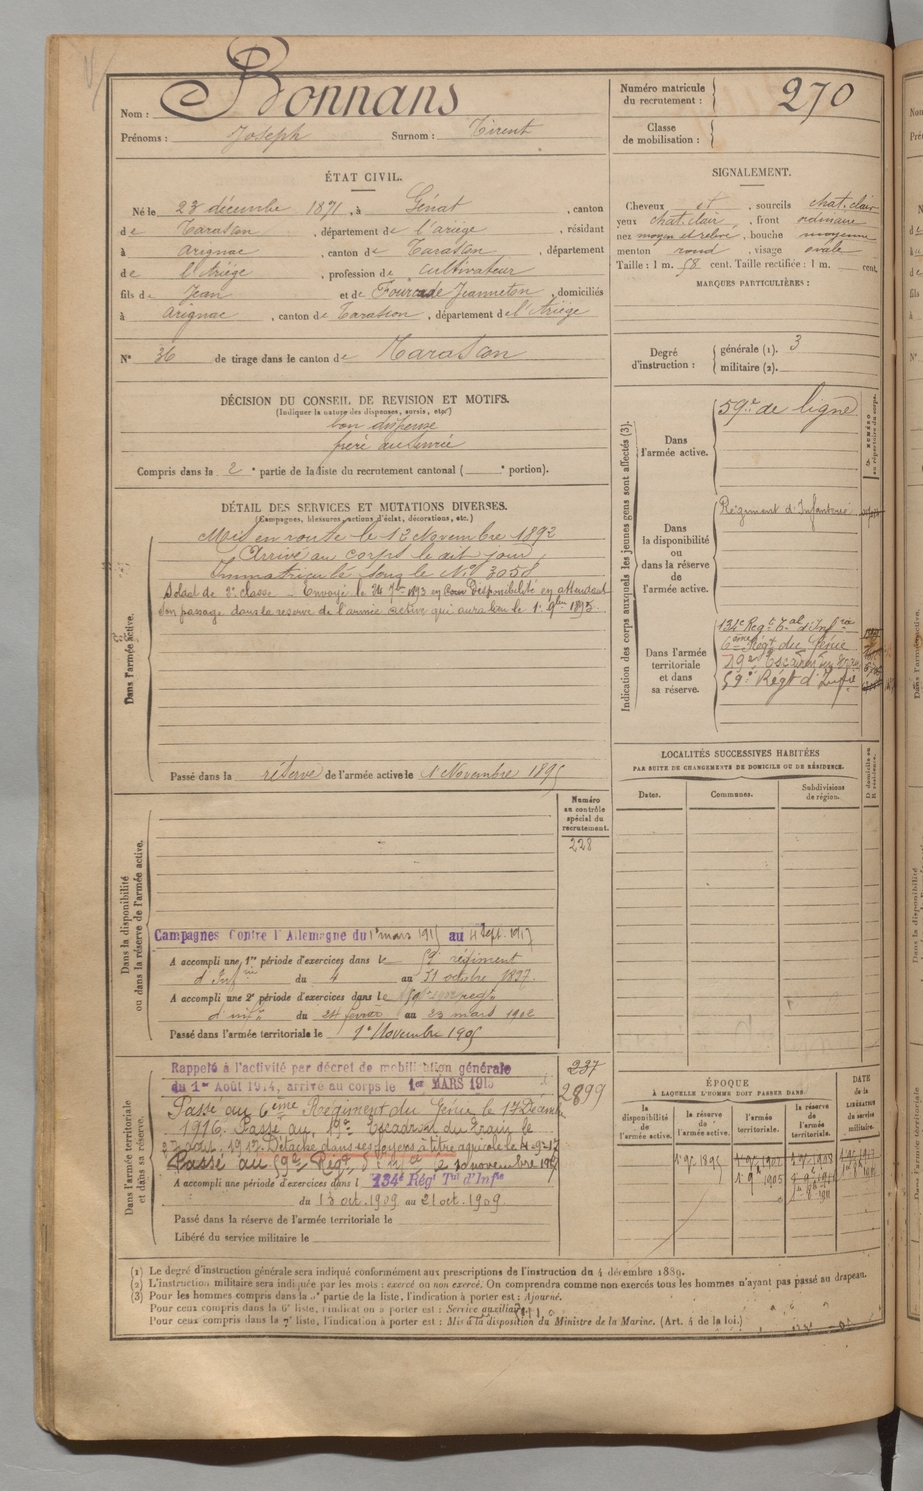 Nom : Bonnans
Prénoms : Joseph Surnom : Tirent
Numéro matricule du recrutement : 270
Classe de mobilisation :
ÉTAT CIVIL.
Né le 23 décembre 1871, à Génat, canton
de Tarascon, département de l'ariège, résidant
à arignac, canton de Tarascon, département
de l'Ariège, profession de cultivateur
fils de Jean et de Fourcade Jeanneton, domiciliés
à arignac, canton de Tarascon, département de l'Ariège
N° 36 de tirage dans le canton de Tarascon
SIGNALEMENT.
Cheveux et, sourcils chat. clair
yeux chat. clair, front ordinaire
nez moyen et relevé, bouche moyenne
menton rond, visage ovale
Taille : 1 m. 58 cent. Taille rectifiée : 1 m. cent.
MARQUES PARTICULIÈRES :
Degré d'instruction : générale (1). 3
militaire (2).
DÉCISION DU CONSEIL DE REVISION ET MOTIFS.
(Indiquer la nature des dispenses, sursis, etc.)
bon dispensé
frère
Compris dans la 2e partie de la liste du recrutement cantonal ( e portion).
DÉTAIL DES SERVICES ET MUTATIONS DIVERSES.
(Campagnes, blessures, actions d'éclat, décorations, etc.)
Dans l'armée active.
Mis en route le 12 Novembre 1892
Arrivé au corps le dit jour,
Immatriculé sous le N° 3058
Soldat de 2e classe _ Envoyé le 24 7bre 1893 en Disponibilité en attendant
son passage dans la réserve de l'armée active qui aura lieu le 1er 9bre 1895
Passé dans la réserve de l'armée active le 1 Novembre 1895
Indication des corps auxquels les jeunes gens sont affectés (3).
Dans l'armée active.
59e de ligne
NUMÉRO au répertoire du corps.
Dans la disponibilité ou dans la réserve de l'armée active.
Régiment d'Infanterie
Dans l'armée territoriale et dans sa réserve.
134e Régt Tal d'Infrie
6ème Régt du Génie
19e Escadron du
59e Régt d'Infie
LOCALITÉS SUCCESSIVES HABITÉES
PAR SUITE DE CHANGEMENTS DE DOMICILE OU DE RÉSIDENCE.
Dates. Communes. Subdivisions de région. D domicile ou R résidence.
Dans la disponibilité ou dans la réserve de l'armée active.
Numéro au contrôle spécial du recrutement.
228
Campagnes Contre l'Allemagne du 1er mars 1915 au 4 Sept. 1917
A accompli une 1re période d'exercices dans le 59e régiment
d'Infrie du 4 au 31 octobre 1897.
A accompli une 2e période d'exercices dans le 59e
d'infie du 24 février au 23 mars 1902
Passé dans l'armée territoriale le 1er Novembre 1905
Dans l'armée territoriale et dans sa réserve.
Rappelé à l'activité par décret de mobilisation générale
du 1er Août 1914, arrivé au corps le 1er MARS 1915
237
2899
Passé au 6ème Régiment du Génie le 17 Décembre
1916. Passé au 19e Escadron du Train le
Détaché dans ses foyers à titre agricole le 4-9-17
Passé au 59e Régt d'Infie le 10 novembre 1917
A accompli une période d'exercices dans l 134e Régt Tal d'Infie
du 13 oct. 1909 au 21 oct. 1909.
Passé dans la réserve de l'armée territoriale le
Libéré du service militaire le
ÉPOQUE
À LAQUELLE L'HOMME DOIT PASSER DANS
la disponibilité de l'armée active. la réserve de l'armée active. l'armée territoriale. la réserve de l'armée territoriale. DATE de la LIBÉRATION du service militaire.
1er 9bre 1895
1er 9bre 1905
(1) Le degré d'instruction générale sera indiqué conformément aux prescriptions de l'instruction du 4 décembre 1889.
(2) L'instruction militaire sera indiquée par les mots : exercé ou non exercé. On comprendra comme non exercés tous les hommes n'ayant pas passé au drapeau.
(3) Pour les hommes compris dans la partie de la liste, l'indication à porter est : Ajourné.
Pour ceux compris dans la 6e liste, l'indication à porter est : Service auxiliaire.
Pour ceux compris dans la 7e liste, l'indication à porter est : Mis à la disposition du Ministre de la Marine. (Art. 4 de la loi.)